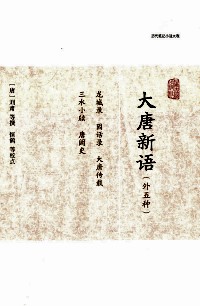 历代笔记小说大观
大唐新语
（外五种）
龙城录 因话录 大唐传载
三水小牍 唐阙史
［唐］刘肃 等撰 恒鹤 等校点